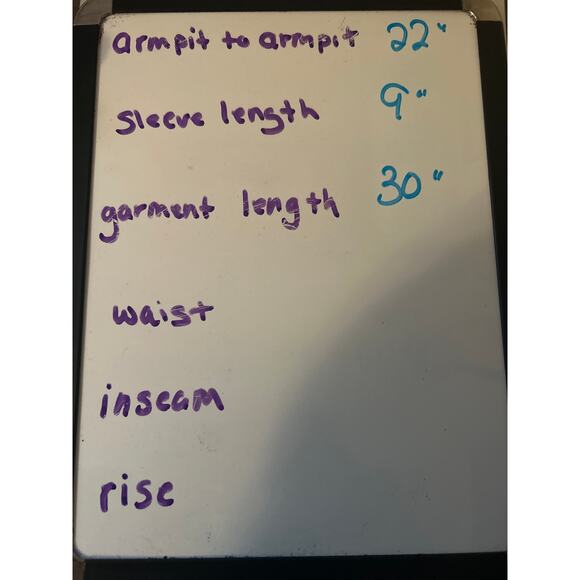 armpit to armpit 22"
sleeve length 9"
garment length 30"
waist
inseam
rise